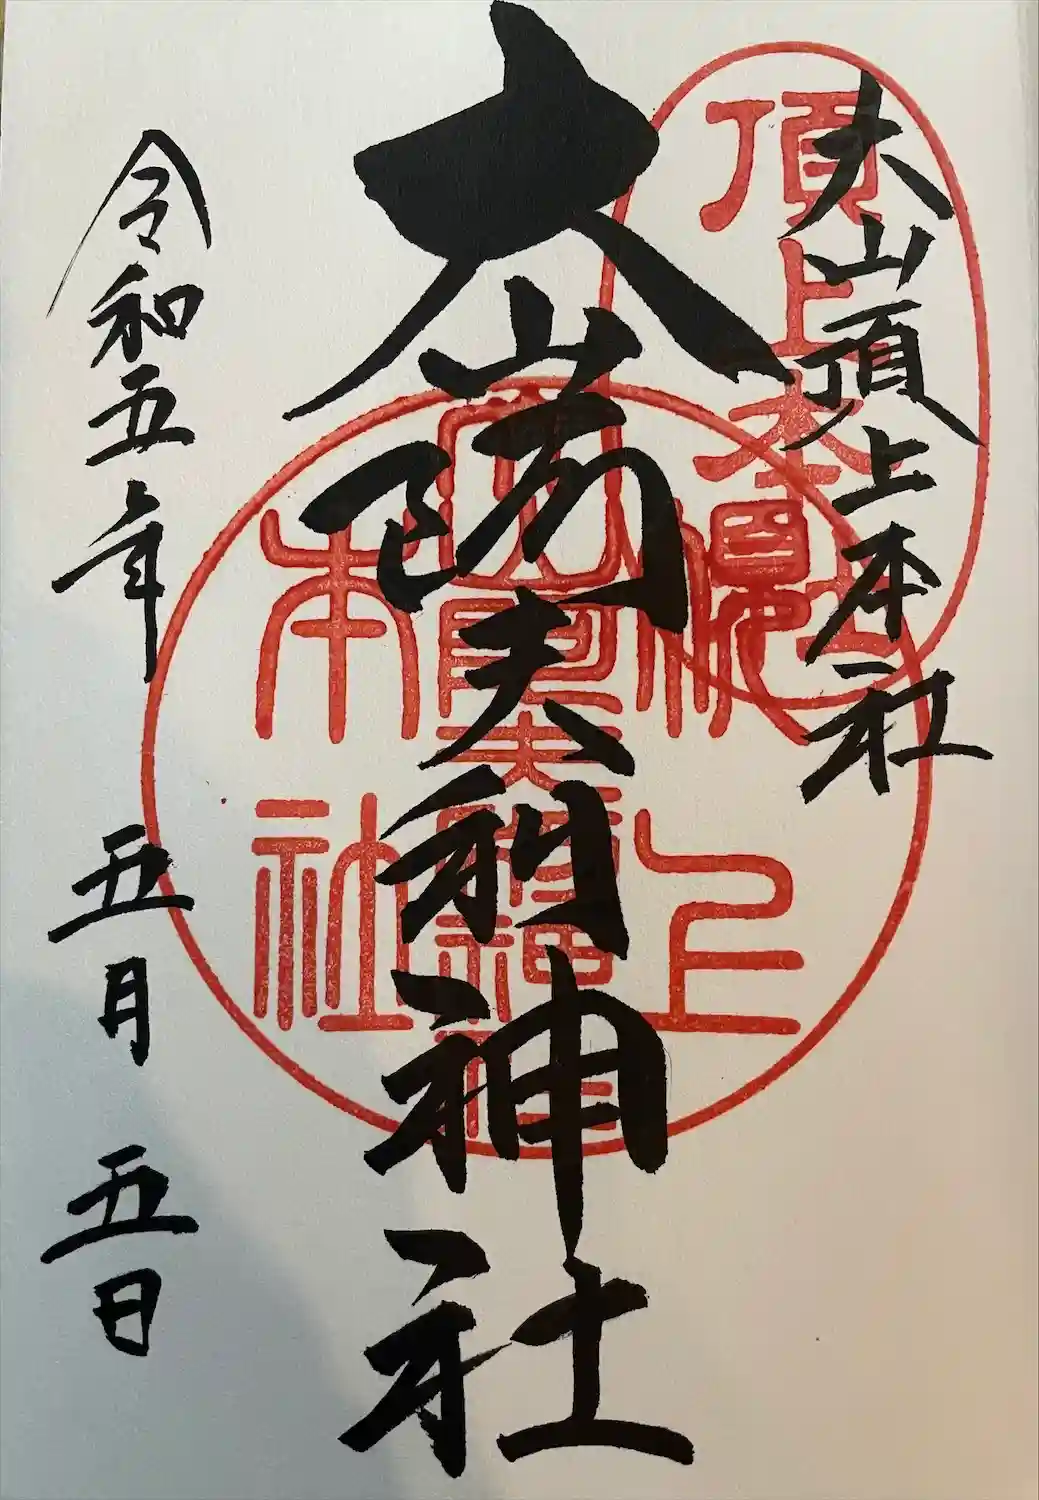 大山頂上本社
大山阿夫利神社
令和五年 五月 五日
頂上本社
上
大山阿夫利神社
本社